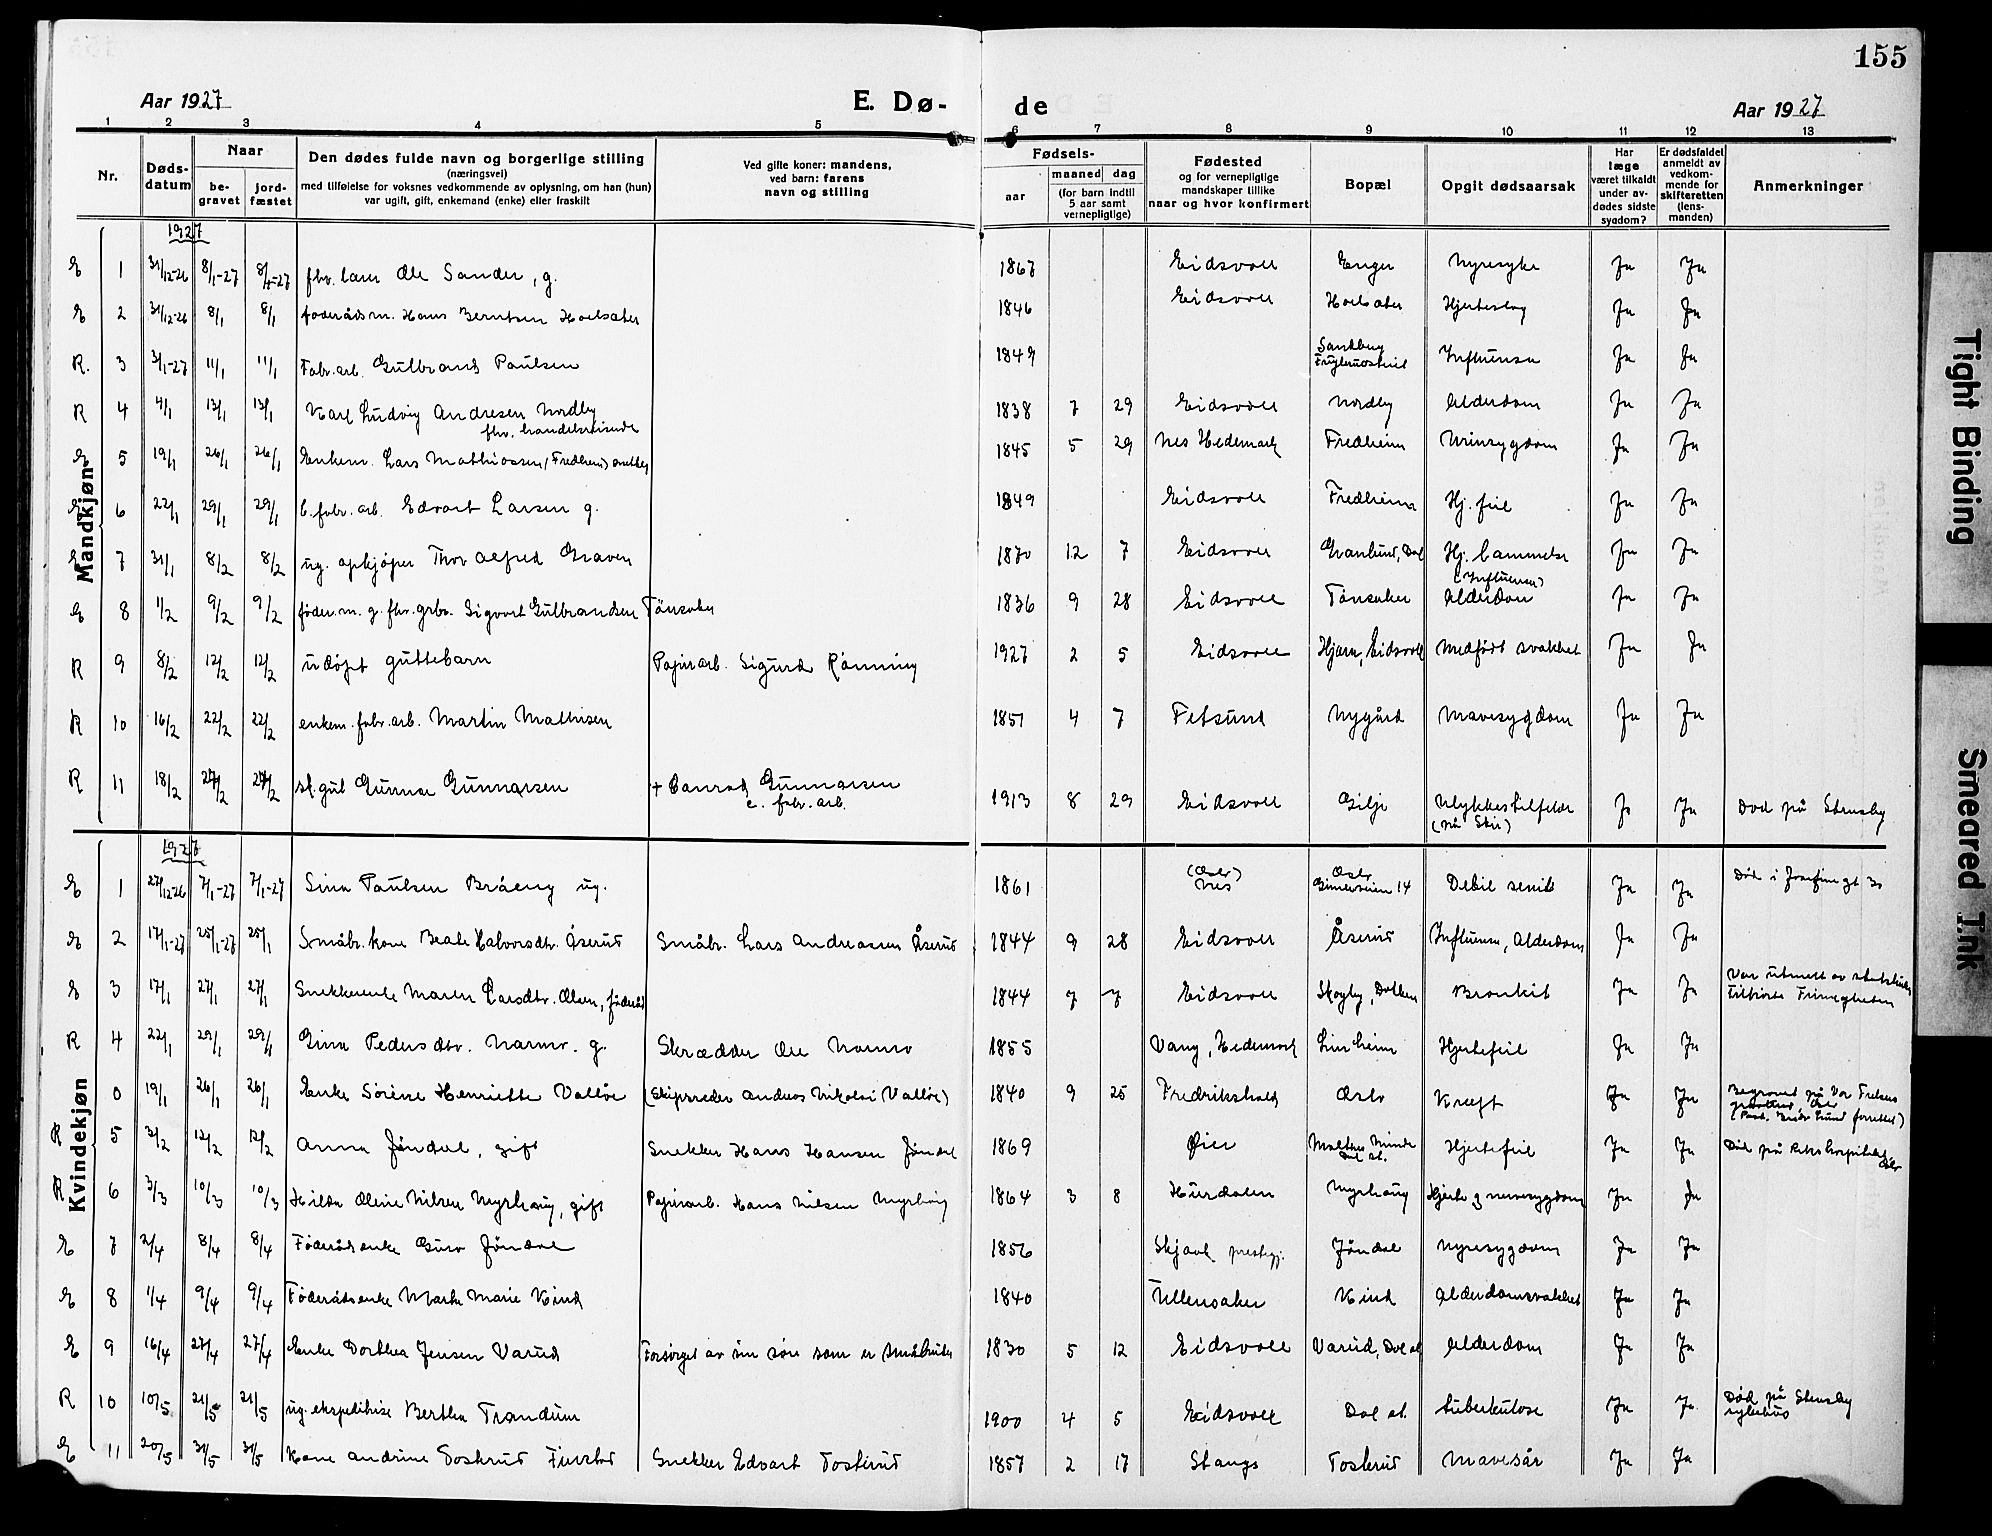 155
Aar 1927
E. Dø-
de
Aar 1927
1 2 3 4 5 6 7 8 9 10 11 12 13
Nr.
Døds-
datum
Naar
be-
gravet
jord-
fæstet
Den dødes fulde navn og borgerlige stilling
(næringsvei)
med tilføielse for voksnes vedkommende av oplysning, om han (hun)
var ugift, gift, enkemand (enke) eller fraskilt
Ved gifte koner: mandens,
ved barn: farens
navn og stilling
Fødsels-
aar
maaned dag
(for barn indtil
5 aar samt
vernepligtige)
Fødested
og for vernepligtige
mandskaper tillike
naar og hvor konfirmert
Bopæl
Opgit dødsaarsak
Har
læge
været tilkaldt
under av-
dødes sidste
sygdom?
Er dødsfaldet
anmeldt av
vedkom-
mende for
skifteretten
(lens-
manden)
Anmerkninger
Mandkjøn
1927
E 1 31/12-26 8/1-27 8/1-27 fhv. lærer Ole Sander, g. 1867 Eidsvoll Enger Nyresyke Ja Ja
E 2 31/12-26 8/1 8/1 føderådsm. Hans Berntsen Hoelsæter 1846 Eidsvoll Hoelsæter Hjerteslag Ja Ja
R. 3 3/1-27 11/1 11/1 Fabr.arb. Gulbrand Paulsen 1849 Sandbug Influensa Ja Ja
R 4 4/1 13/1 13/1 Karl Ludvig Andresen Nordby 1838 7 29 Eidsvoll Nordby Alderdom Ja Ja
fhv. handelsreisende
E 5 19/1 26/1 26/1 Enkem. Lars Mathiassen (Fredheim) 1845 5 29 Nes Hedemark Fredheim Urinsygdom Ja Ja
E 6 22/1 29/1 29/1 f. fabr. arb. Edvart Larsen g. 1849 Eidsvoll Fredheim Hj. feil Ja Ja
E 7 31/1 8/2 8/2 ug. opkjøper Thor Alfred Graven 1870 12 7 Eidsvoll Granlund, Dal Hj. lammelse Ja Ja
(Influensa)
E 8 1/2 9/2 9/2 føder.m. g. fhv. grbr. Sigvart Gulbrandsen Tønsaker 1836 9 28 Eidsvoll Tønsaker Alderdom Ja Ja
R 9 8/2 12/2 12/2 udøpt guttebarn Papirarb. Sigurd Rønning 1927 2 5 Eidsvoll Hjæra, Eidsvoll Medfødt svakhet Ja Ja
R 10 16/2 22/2 22/2 enkem. fabr. arb. Martin Mathisen 1851 4 7 Fetsund Nygård Mavesygdom Ja Ja
R 11 18/2 27/2 27/2 sk.gut Gunnar Gunnarsen + Conrad Gunnarsen 1913 8 29 Eidsvoll Gilje Ulykkestilfelde Ja Ja Død på Stensby
e. fabr. arb. (på Ski)
Kvindekjøn
1927
E 1 27/12-26 7/1-27 7/1-27 Sina Paulsen Bråeng ug. 1861 (Oslo) Oslo Debil senil Ja Ja Død i Josefine gt 30
Nes Gimleveien 14
E 2 17/1-27 25/1-27 25/1 Småbr. kone Beate Halvorsdtr. Åserud Småbr. Lars Andreassen Åserud 1844 9 28 Eidsvoll Åserud Influensa, Alderdom Ja Ja
E 3 17/1 27/1 27/1 Snekkerenke Maren Larsdtr. Olsen, føderåd 1844 7 7 Eidsvoll Skogly, Dokken Bronkit Ja Ja
R 4 22/1 29/1 29/1 Gina Pedersdtr. Narmo. g. Skrædder Ole Narmo 1855 Vang, Hedemark Linheim Hjertefeil Ja Ja
0 19/1 26/1 26/1 Enke Sørine Henriette Valløe (Skipsreder Andreas Nikolai Valløe) 1840 9 25 Fredrikshald Oslo Kræft Ja Ja Begravet på Vor Frelsers
gravlund Oslo
R 5 3/2 12/2 12/2 Anna Jøndal, gift Snekker Hans Hansen Jøndal 1869 Øier Malthes Minde Hjertefeil Ja Ja Død på Rikshospitalet,
Dal st. Oslo
R 6 3/3 10/3 10/3 Hilda Oline Nilsen Myrhaug, gift Papirarb. Hans Nilsen Myrhaug 1864 3 8 Hurdalen Myrhaug Hjerte og nervesygdom Ja Ja
E 7 2/4 8/4 8/4 Føderådsenke Guro Jøndal 1856 Skjåk prestegj. Jøndal Nyresygdom Ja Ja
E 8 1/4 9/4 9/4 Føderådsenke Marte Marie Kind 1840 Ullensaker Kind Alderdomssvakhet Ja Ja
E 9 16/4 27/4 27/4 Enke Dorthea Jensen Varud Forsørget av sin søn som er småbruker 1830 5 12 Eidsvoll Varud, Dal st Alderdom Ja Ja
R 10 10/5 21/5 21/5 ug. ekspeditrise Bertha Trandum 1900 4 5 Eidsvoll Dal st. tuberkulose Ja Ja Død på Stensby
sykehus
E 11 20/5 31/5 31/5 Kone Andrine Tosterud Finstad Snekker Edvart Tosterud 1857 2 17 Stange Tosterud Mavesår Ja Ja
Tight Binding
Smeared Ink